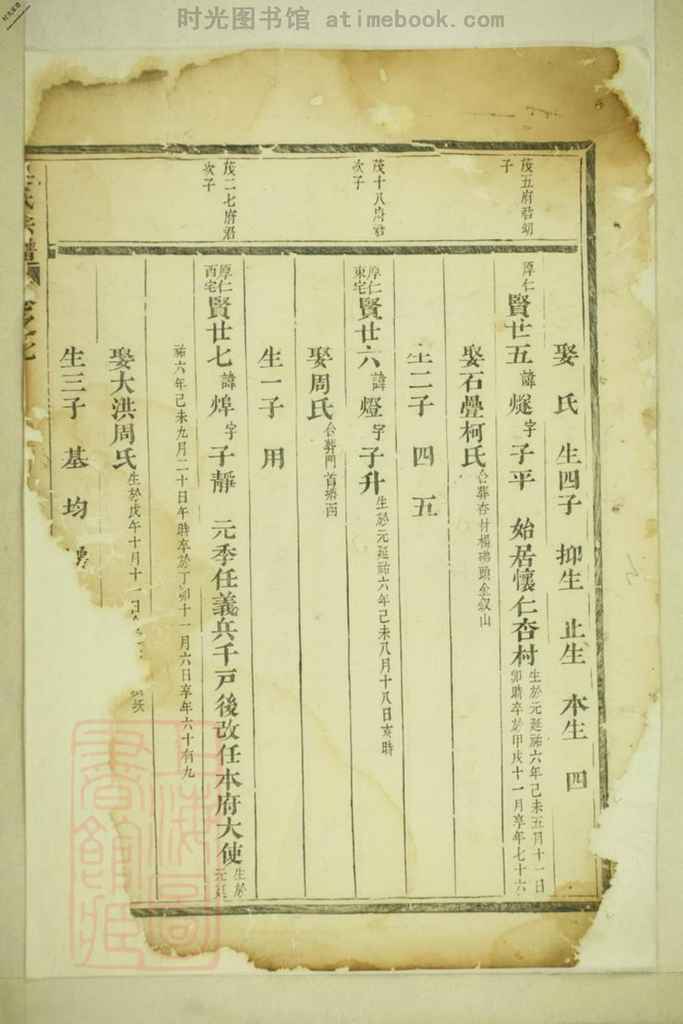 时光图书馆 atimebook.com
茂五府君嗣
子
娶 氏 生四子 抑生 止生 本生 四
厚仁
賢廿五 諱 燧 字 子平 始居懷仁杏村
生於元延祐六年己未五月十一日
卯時卒於甲戌十一月享年七十六
娶石疊柯氏
合葬杏村楊
頭金釵山
生二子 四 五
茂十八府君
次子
厚仁
東宅
賢廿六 諱 燈 字 子升 生於元延祐六年己未八月十八日亥時
娶周氏
合葬門首
西
生一子 用
茂二七府君
次子
厚仁
西宅
賢廿七 諱 焊 字 子靜 元季任義兵千戸後改任本府大使
生於
元延
祐六年己未九月二十日午時卒於丁卯十一月六日享年六十有九
娶大洪周氏 生於戊午十月十一日
生三子 基 均
氏宗譜
卷之七
上海圖
書館藏